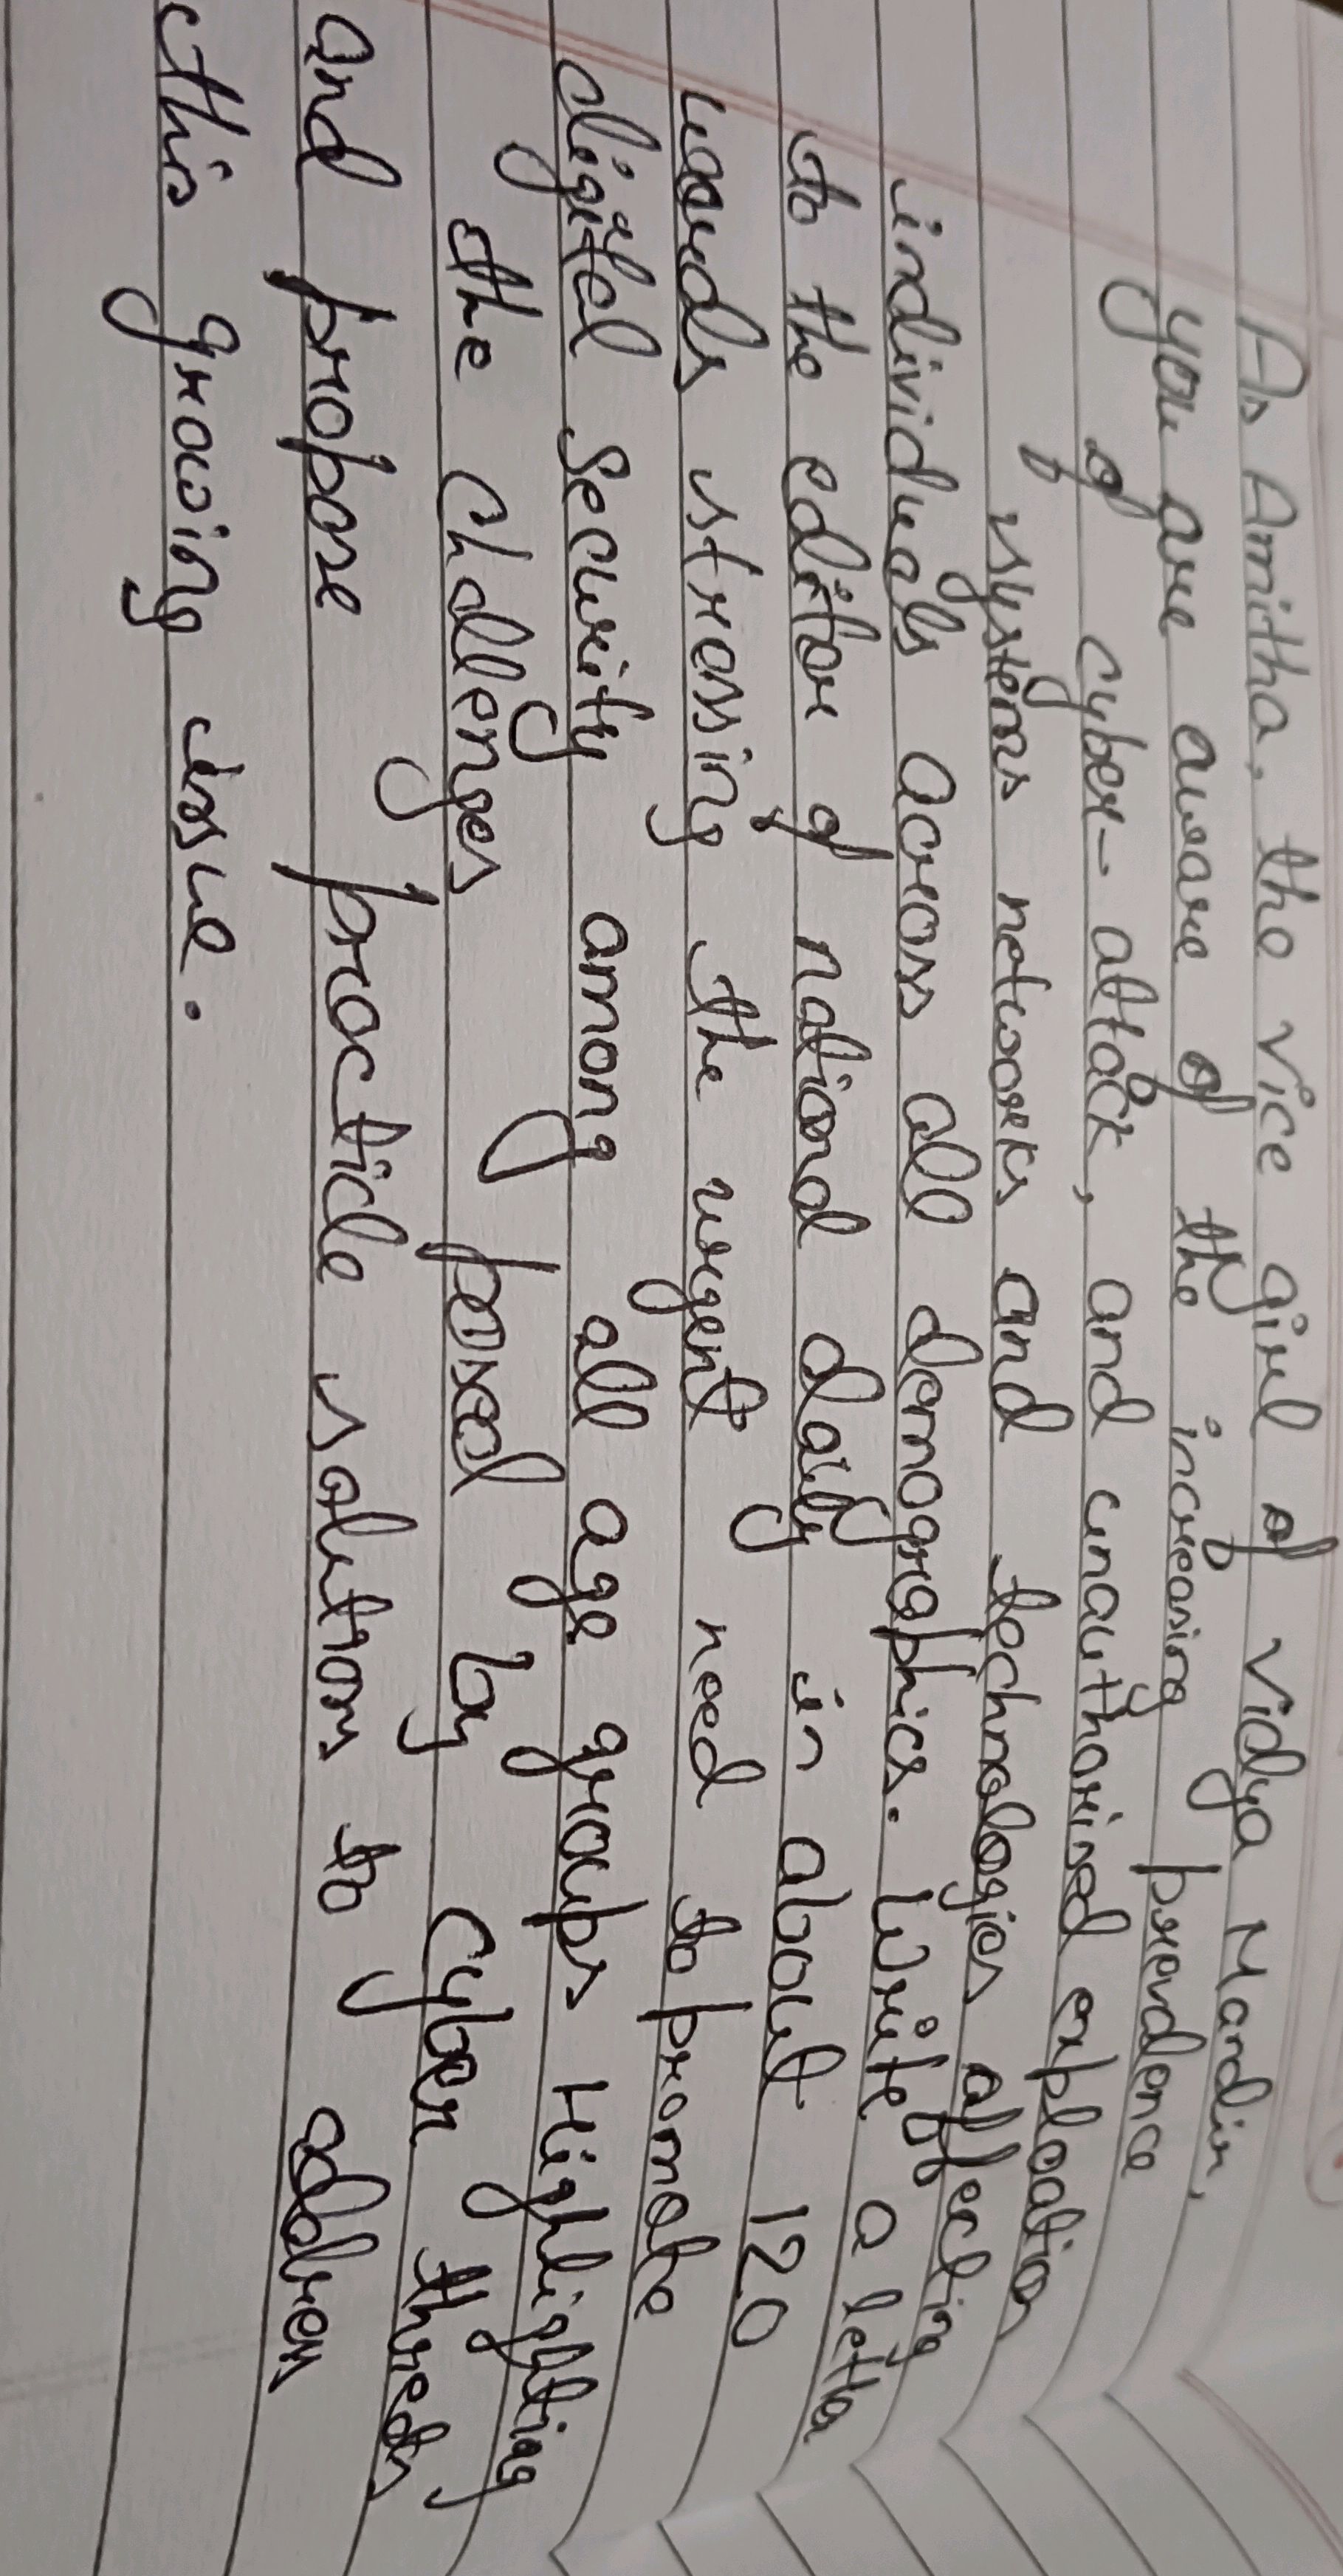 As Amitha, the vice girl of Vidya Mandir,
you are aware of the increasing prevalence
of cyber-attack, and unauthorised exploation
systems networks and technologies affecting
individuals across all demographics. Write a letter
to the editor of national daily in about 120
words stressing the urgent need to promote
digital security among all age groups Highlighting
the challenges posed by Cyber threats
and propose practicle solutions to address
this growing issue.